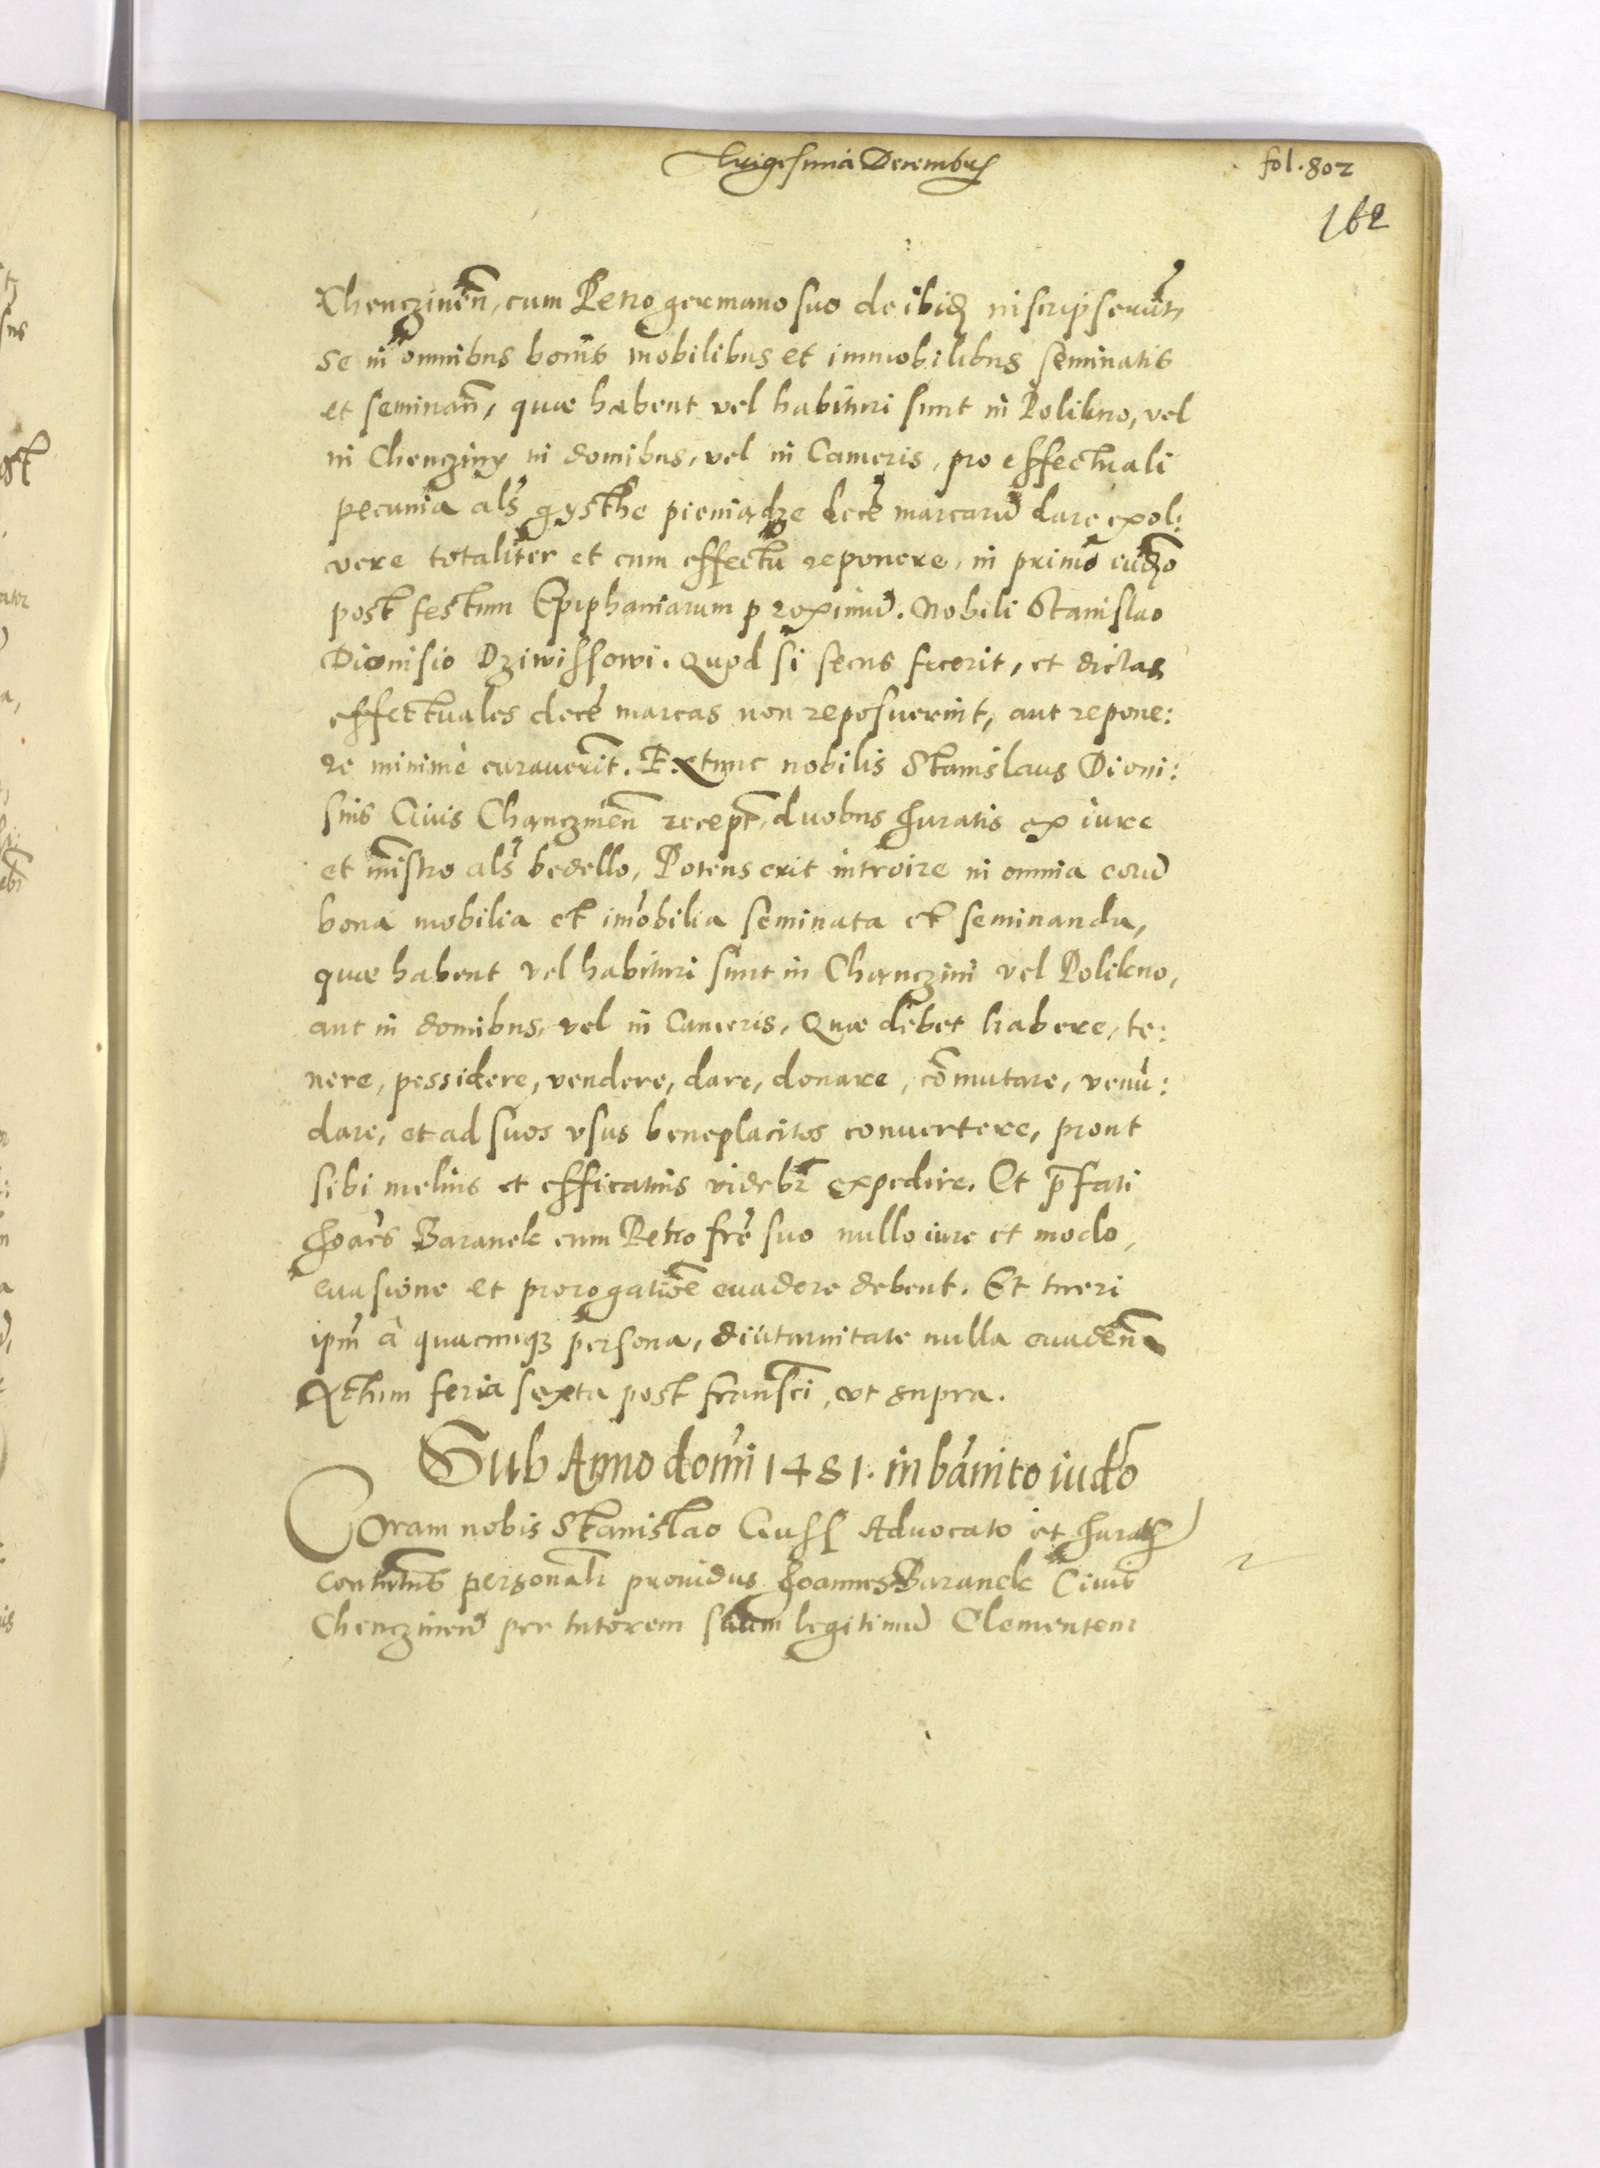 Luigesima Decembris
fol. 802
162
Chenczinen̄, cum Petro germano suo de ibidē inscripserūt,
se in omnibus bonis mobilibus et immobilibus seminatis
et seminan̄, quæ habent vel habituri sunt in Polikno, vel
in Chencziny in domibus, vel in Cameris, pro effectuali
pecunia als̄ gysthe pieniądze decē marcarū dare exol:
vere totaliter et cum effectu reponere, in primo iudō
post festum Epiphaniarum proximū. Nobili Stanislao
Dionisio Dziwissowi. Quod si secus fecerit, et dictas
effectuales decē marcas non reposuerint, aut repone:
re minimè curauerīt. Extunc nobilis Stanislaus Dioni:
sius Ciuis Chąnczinen̄ recept̄, duobus Juratis ex iure
et mīstro als̄ bedello, Potens erit introire in omnia eorū
bona mobilia et im̄obilia seminata et seminanda,
quæ habent vel habituri sunt in Chąnczini vel Polikno,
aut in domibus, vel in Cameris, Quæ debet habere, te:
nere, possidere, vendere, dare, donare, com̄utare, venū:
dare, et ad suos vsus beneplacitos conuertere, prout
sibi melius et efficatius videbr̄ expedire. Et p̄fati
Joan̄es Baranek cum Petro frē suo nullo iure et modo,
euasione et prorogatiōe euadere debent. Et tueri
ipm̄ à quacunqȝ persona, diuturnitate nulla euaden̄
Actum feria sexta post Fransci, vt supra.
Sub Anno domi̅ 1481. in ban̄ito iudō
Coram nobis Stanislao Guss Aduocato et Juratis
constitut̄us personalr̄ prouidus Joannes Baranek Ciuis
Chenczinen̄ per tutorem suum legitimū Clementem